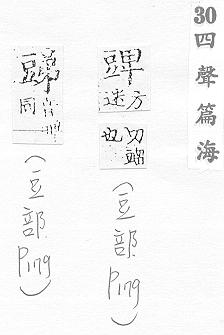 30四聲篇海
豍方迷切也
(豆部Ping)
同
(豆部Ping)